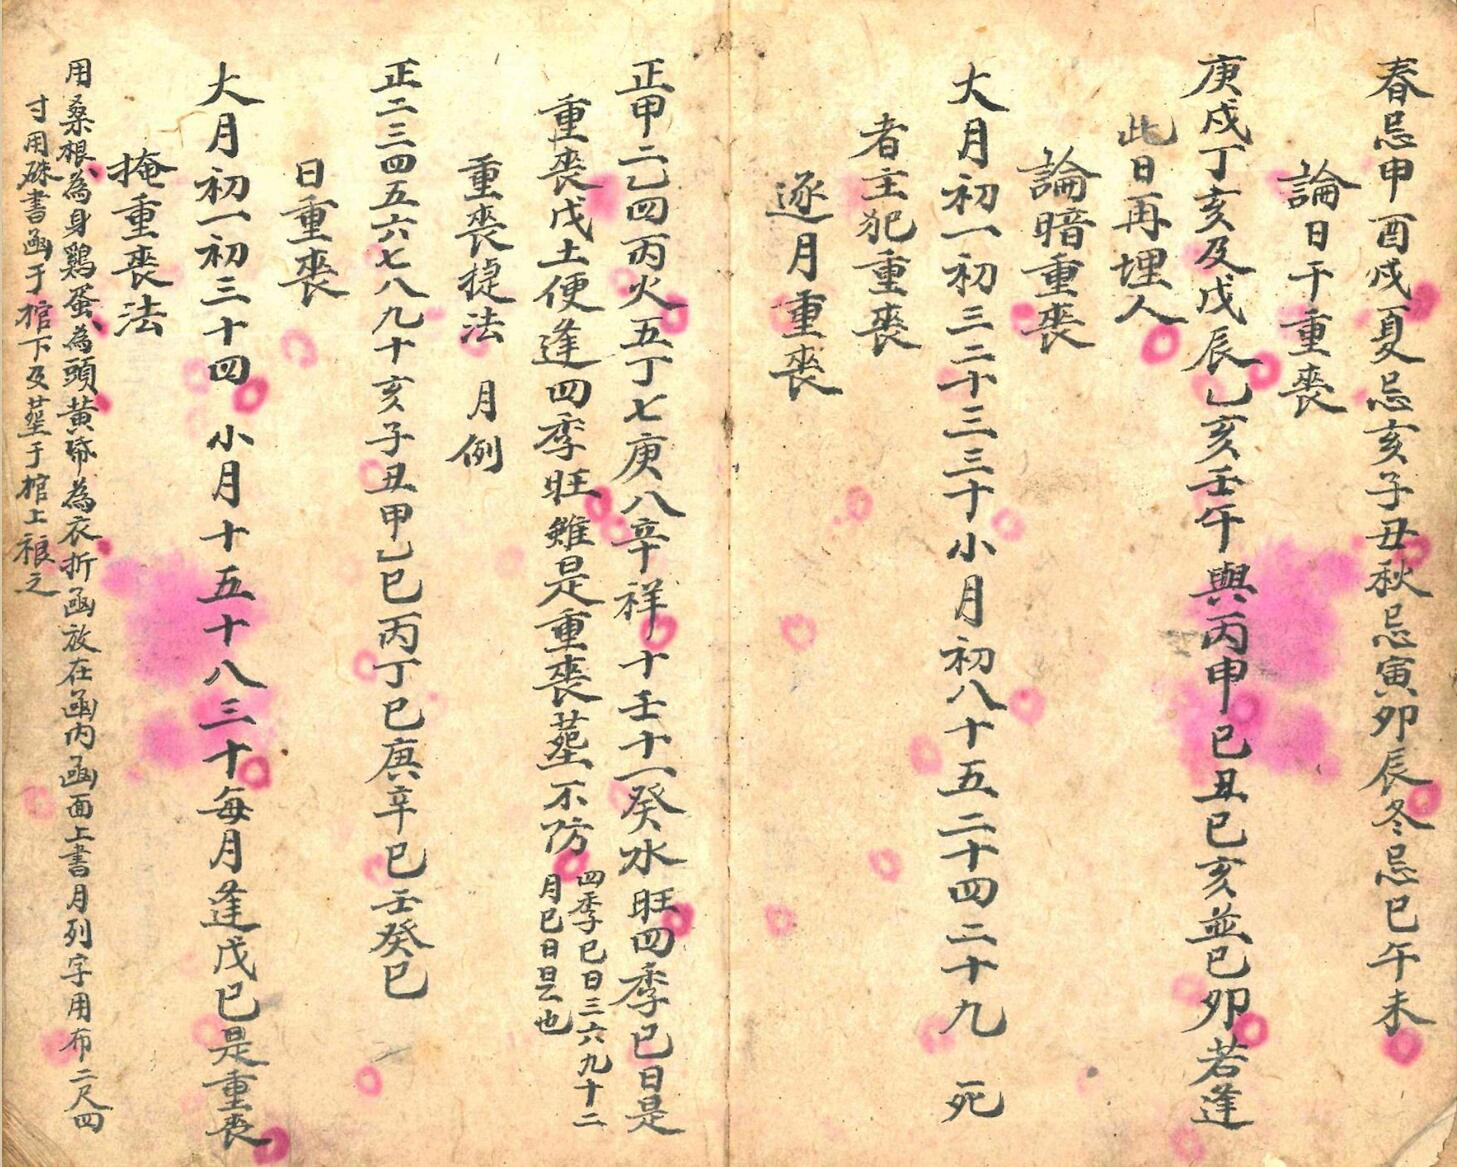 春忌申酉戍夏忌亥子丑秋忌寅卯辰冬忌巳午未
論日干重喪
庚戍丁亥及戊辰乙亥壬午與丙申巳丑巳亥並巳卯若逢
此日再埋人
論暗重喪
大月初一初三二十三三十小月初八十五二十四二十九 死
者主犯重喪
逐月重喪
正甲二乙四丙火五丁七庚八辛祥十壬十一癸水旺四季巳日是
重喪戊土便逢四季旺雖是重喪塟不防
四季巳日三六九十二
月巳日是也
重喪捷法 月例
正二三四五六七八九十亥子丑甲乙巳丙丁巳庚辛巳壬癸巳
日重喪
大月初一初三十四 小月十五十八三十每月逢戊巳是重喪
掩重喪法
用桑根為身鷄蛋為頭黃帋為衣折函放在函内函面上書月列字用布二尺四
寸用硃書函于棺下及塟于棺上裉之